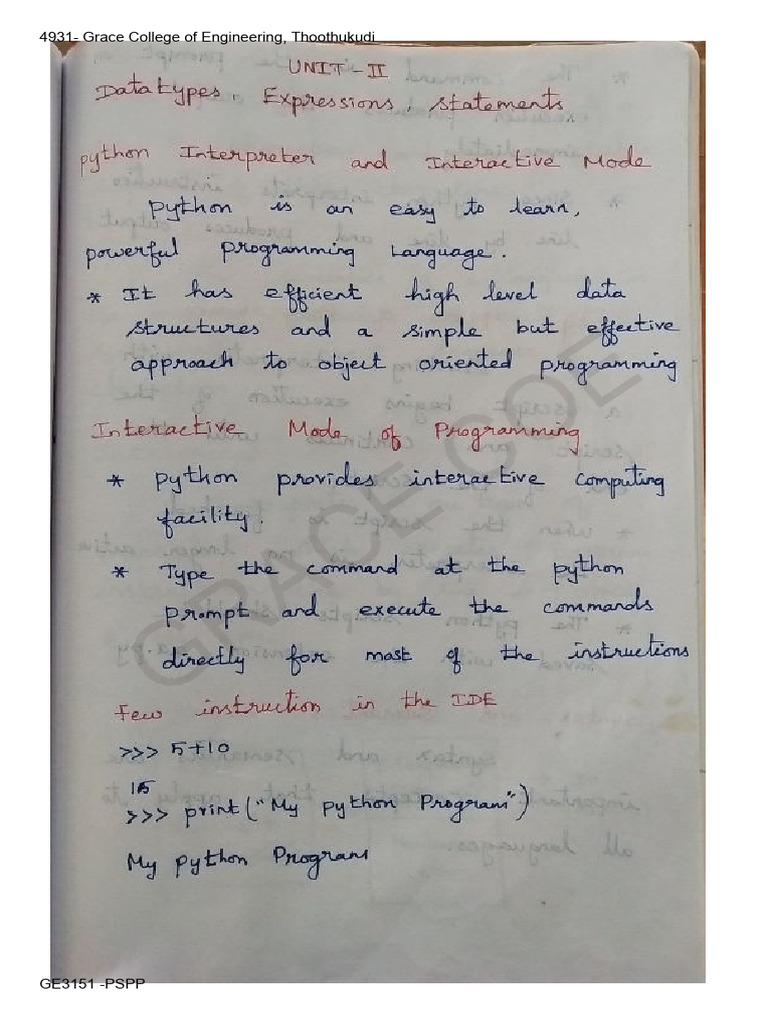 4931- Grace College of Engineering, Thoothukudi
UNIT-II
Datatypes, Expressions, Statements
python Interpreter and Interactive Mode
Python is an easy to learn,
powerful programming Language.
* It has efficient high level data
structures and a simple but effective
approach to object oriented programming
Interactive Mode of Programming
* Python provides interactive computing
facility.
* Type the command at the python
prompt and execute the commands
directly for most of the instructions
Few instruction in the IDE
>>> 5+10
15
>>> print("My python Program")
My Python Program
GRACE COE
GE3151 -PSPP